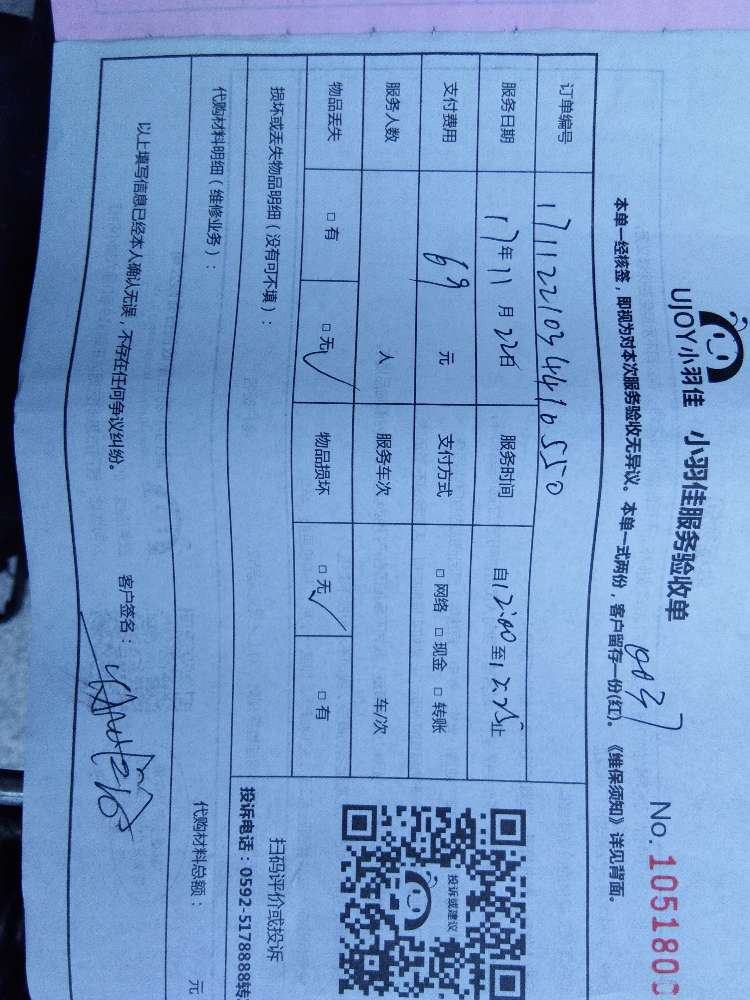 UJOY小羽佳 小羽佳服务验收单
No. 1051800
0037
本单一经核签，即视为对本次服务验收无异议。本单一式两份，客户留存一份(红)。《维保须知》详见背面。
订单编号 17112210344410550
服务日期 17年11月22日 服务时间 自12:00至12:25止
支付费用 69 元 支付方式 □ 网络 □ 现金 □ 转账
服务人数 人 服务车次 车/次
物品丢失 □ 有 □ 无 ✓ 物品损坏 □ 无 ✓ □ 有
损坏或丢失物品明细（没有可不填）：
投诉或建议
扫码评价或投诉
投诉电话：0592-5178888转
代购材料明细（维修业务）： 代购材料总额： 元
以上填写信息已经本人确认无误，不存在任何争议纠纷。 客户签名：